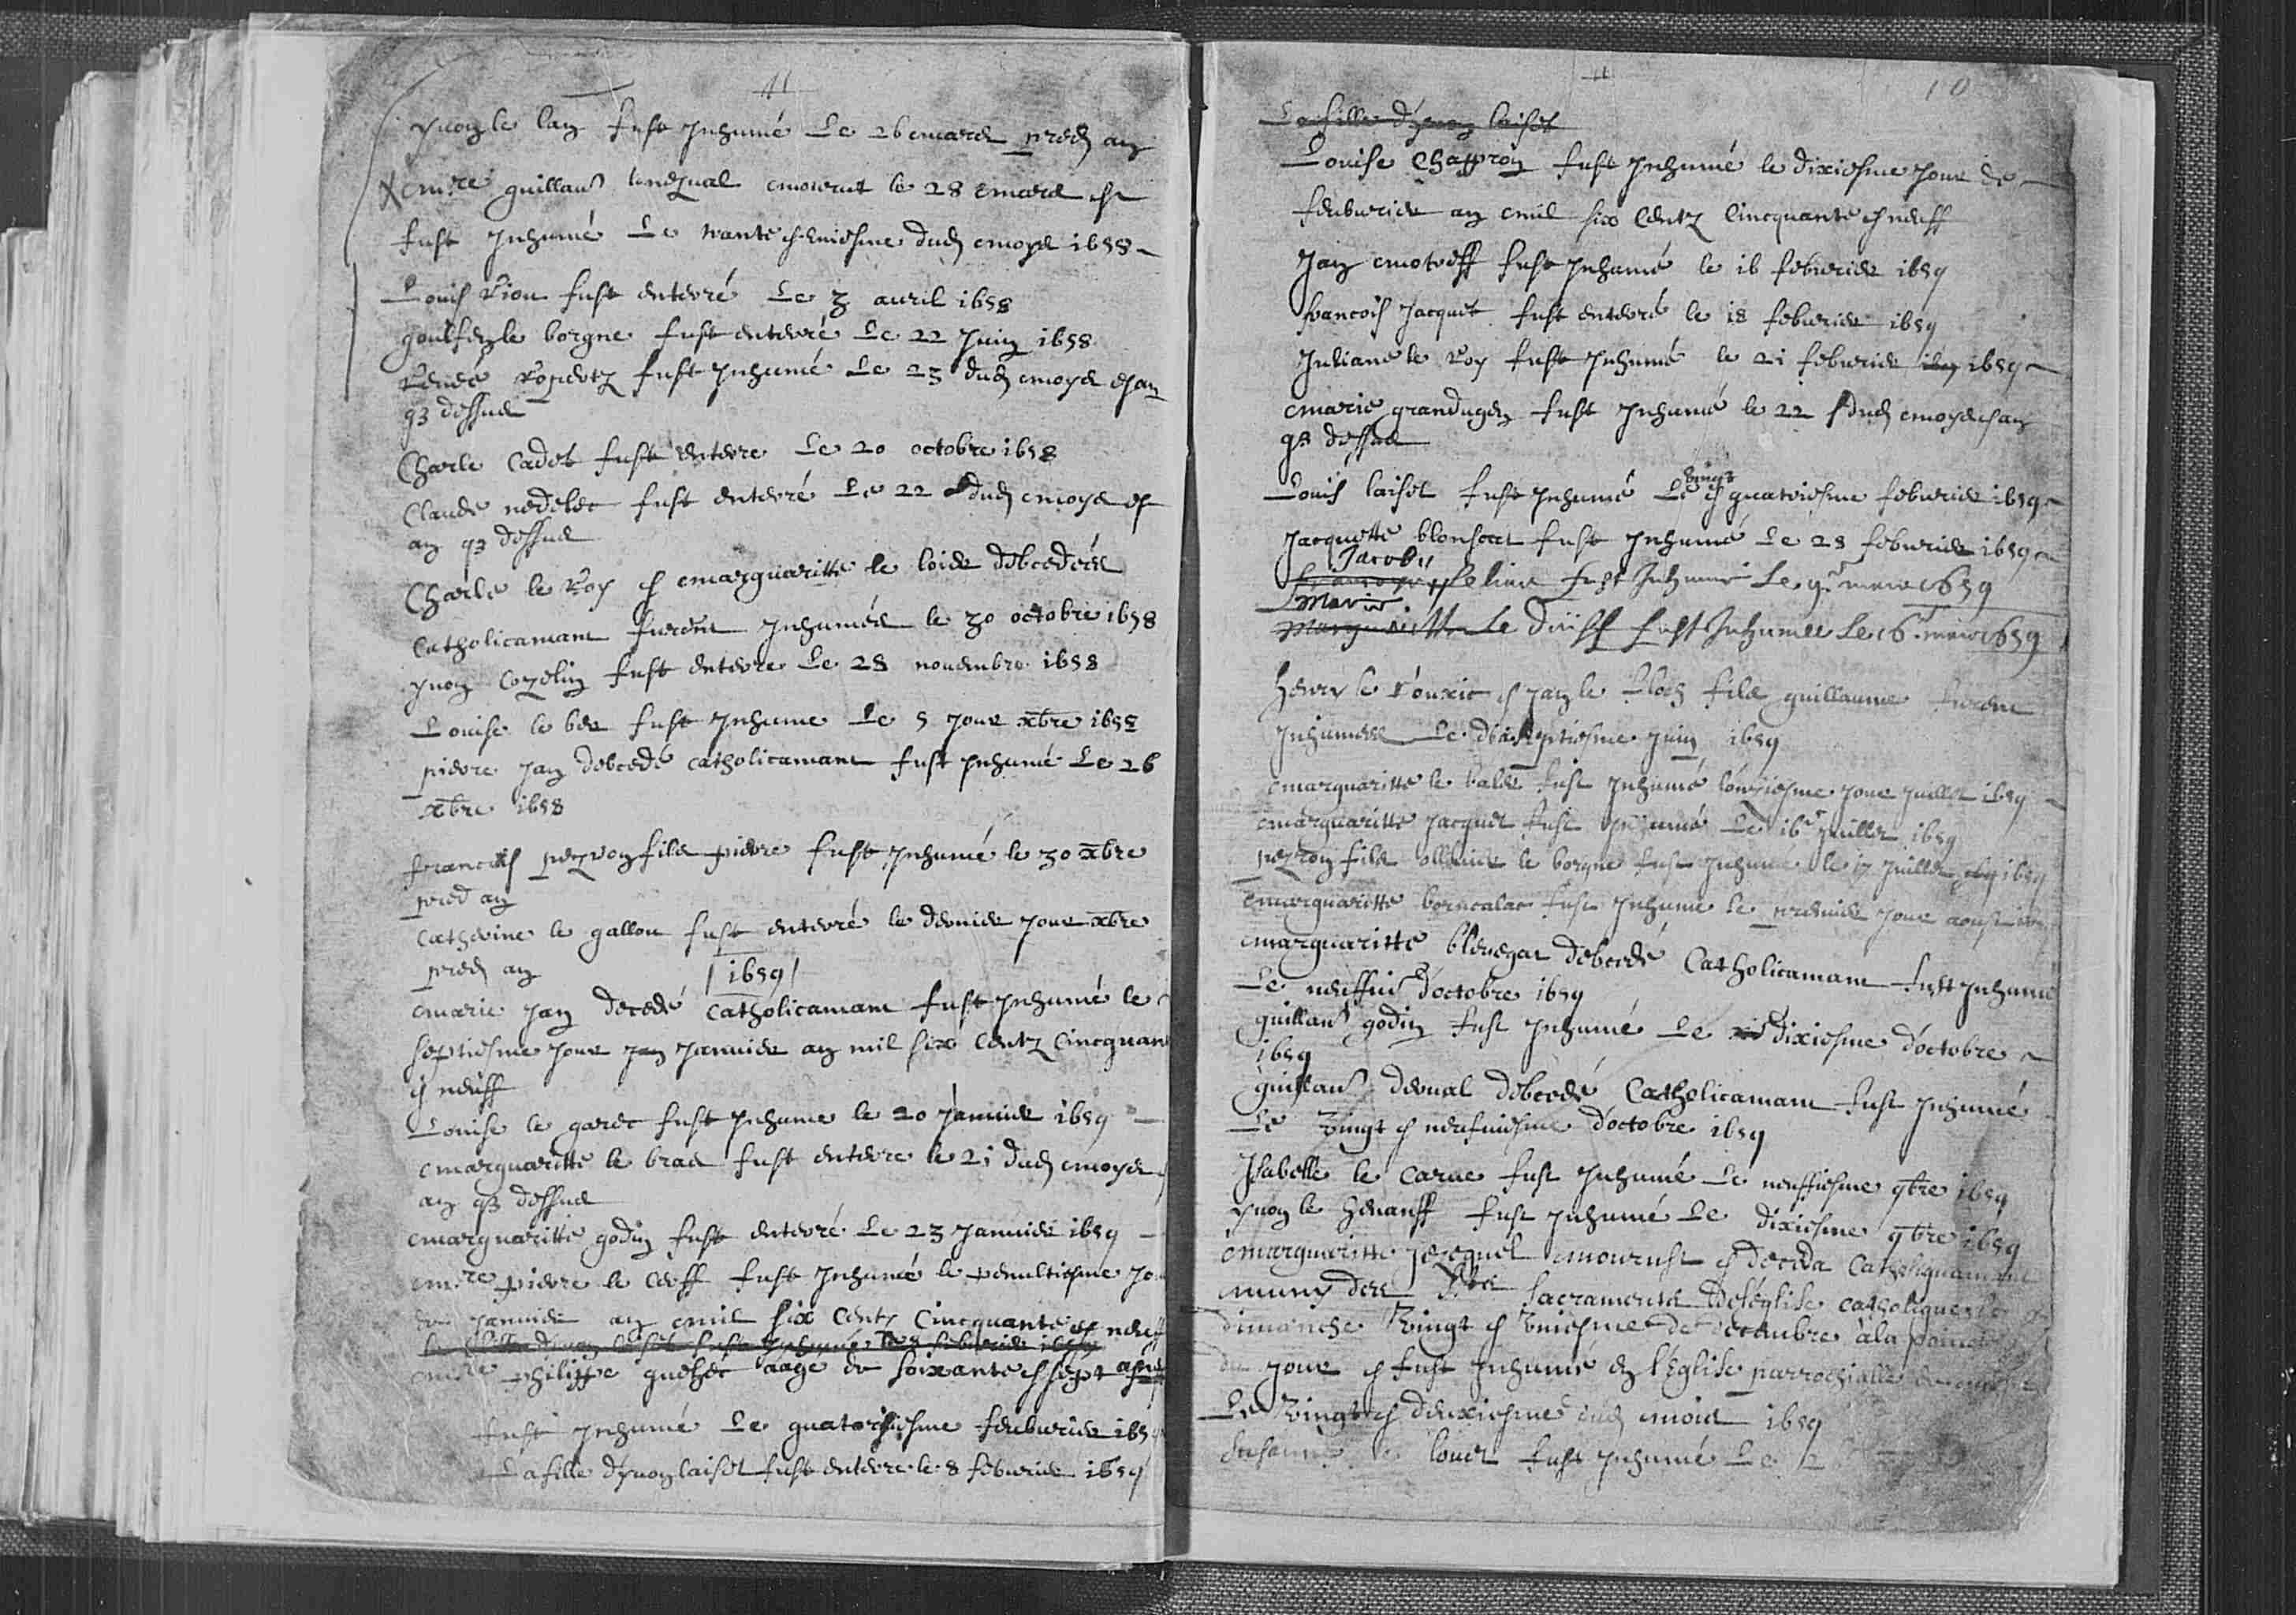 yuon le lay fust inhumé le 26 mars pred an
mre guillau lenezual mourut le 28 mars et
fust inhumé le trante et uniesme dud moys 1658
Louis Riou fust enterré le 3 auril 1658
goulfen le borgne fust enterré le 22 juin 1658
Renée Ropertz fust inhumé le 23 dud moys et an
q3 dessus
Charle Cadet fust enterre le 20 octobre 1658
Claude nedelec fust enterré le 22 dud moys et
an q3 dessus
Charle le Roy et marguaritte le loier debcedés
catholicamant furent inhumés le 30 octobre 1658
yuon cozelin fust enterre le 28 nouembre 1658
Louise le ber fust inhume le 5 jour xbre 1658
pierre jan debcedé catholicamant fust inhumé le 26
xbre 1658
francois pezron fils pierre fust inhumé le 30 xbre
pred an
catherine le gallou fust enterré le dernier jour xbre
pred an
1659
marie jan decedé catholicamant fust inhumé le
septiesme jour januier an mil six centz cincquant
et neuff
Louise le garec fust inhume le 20 januier 1659
marguaritte le bras fust enterre le 21 dud moys
an q3 dessus
marguaritte godin fust enterré le 23 januier 1659
mre pierre le cueff fust inhumé le penultiesme jo
de januier an mil six centz cincquante et neuff
la fille dyuon laisel fust inhumé le 8 feburier 1659
mre philippe guehec aage de soixante et sept ans
fust inhumé le quatorsiesme feuburier 1659
La fille dyuon laisel fust enterre le 8 feburier 1659
10
La fille dyuon laisel
Louise Chappron fust inhumé le dixiesme jour de
feuburier an mil six centz cincquante et neuff
Jan motreff fust inhumé le 16 feburier 1659
francois jacquet fust enterré le 18 feburier 1659
Juliane le Roy fust inhumé le 21 feburier 1659
marie grandugen fust inhumé le 22 dud moys et an
q3 dessus
Louis laisel fust inhumé le vingt et quatriesme feburier 1659
Jacquette blonsart fust inhumé le 28 feburier 1659
Jacob
fust Inhumé Le 9e 1659
Marie
Margueritte Le fust Inhumee Le 16e 1659
Henry le rouxic et jan le floch fils guillaume furent
inhumees le dixseptiesme juin 1659
marguaritte le fust inhumé lonziesme jour juillet 1659
marguaritte jacquet fust inhumé le 16e juillet 1659
pezron fils olliuier le borgne fust inhumé le 17 juillet 1659
marguaritte fust inhume le premier jour aoust
marguaritte blenegat debcedé catholicamant fust inhumé
le neuffuie doctobre 1659
guillau godin fust inhumé le dixiesme doctobre
1659
guillau derual debcedé catholicamant fust inhumé
le vingt et neufuiesme doctobre 1659
Isabelle le carae fust inhumé le neuffiesme 9bre 1659
yuon le henanff fust inhumé le dixiesme 9bre 1659
marguaritte jezequel mourust et deceda catholiquamant
muny des sacraments de léglise catholique le
dimanche vingt et vniesme de decembre à la
du jour et fust inhumé en l'église parrochialle de
le vingt et deuxiesme dud mois 1659
louet fust inhumé le